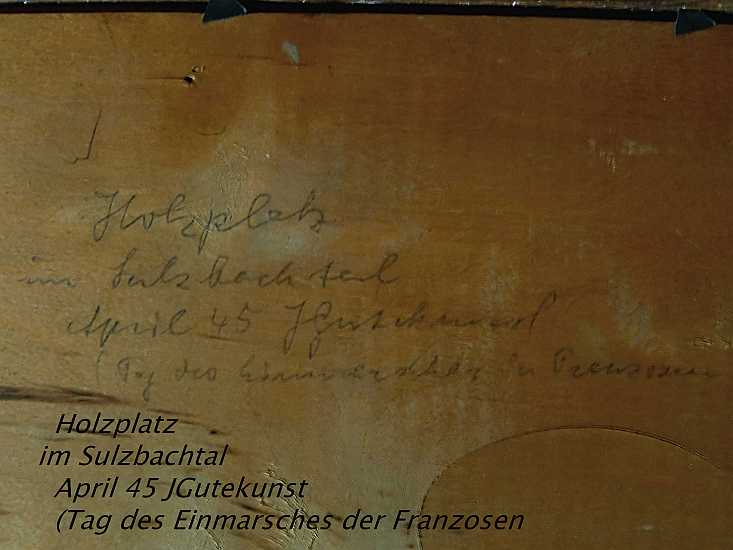 Holzplatz
im Sulzbachtal
April 45 JGutekunst
(Tag des Einmarsches der Franzosen
Holzplatz
im Sulzbachtal
April 45 JGutekunst
(Tag des Einmarsches der Franzosen